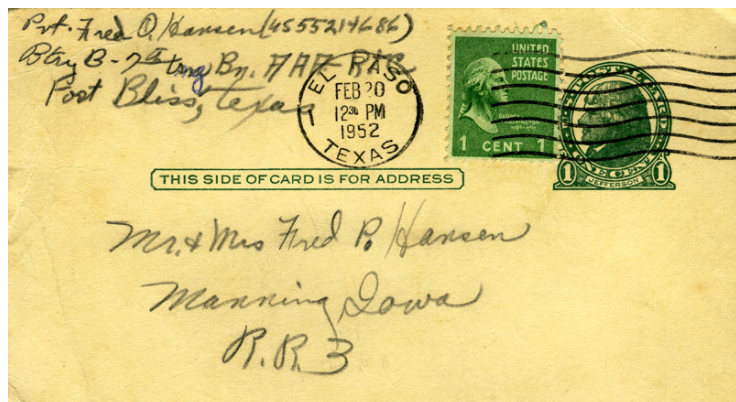 Pvt. Fred O. Hansen (US55214686)
Btry B - 7th trng Bn. AAA-RTC
Fort Bliss, Texas
EL PASO
FEB 20
12 30 PM
1952
TEXAS
UNITED
STATES
POSTAGE
1 CENT 1
U.S. POSTAL CARD
1 JEFFERSON 1
ONE CENT
THIS SIDE OF CARD IS FOR ADDRESS
Mr. & Mrs Fred P. Hansen
Manning, Iowa
R.R. 3